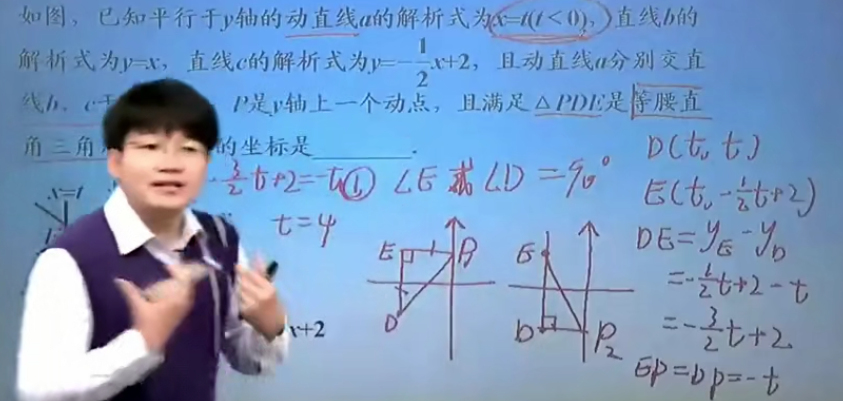 如图，已知平行于y轴的动直线a的解析式为x=t(t<0)，直线b的
解析式为y=x，直线c的解析式为y=-\frac{1}{2}x+2，且动直线a分别交直
线b、c于 P是y轴上一个动点，且满足△PDE是等腰直
角三角 的坐标是______.
-\frac{3}{2}t+2=-t ① ∠E或∠D=90°
t=4
x=t
x+2
E P
D
E
D P₂
D(t, t)
E(t, -\frac{1}{2}t+2)
DE=y_E-y_D
=-\frac{1}{2}t+2-t
=-\frac{3}{2}t+2.
EP=DP=-t